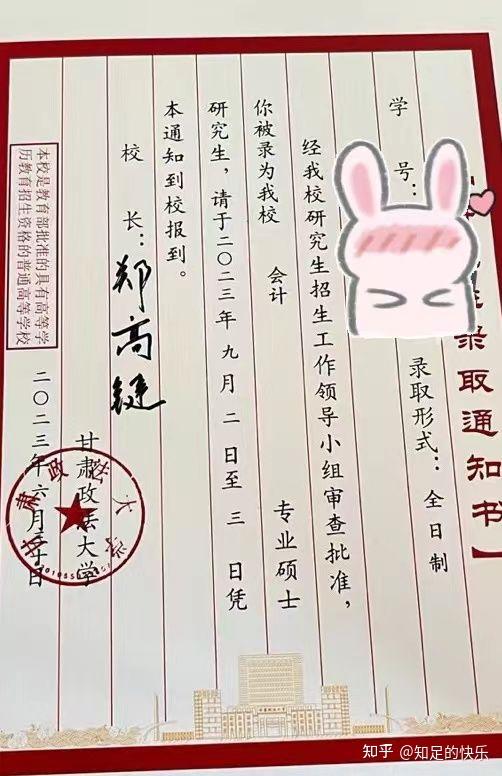 录取通知书】
学号： 录取形式：全日制
经我校研究生招生工作领导小组审查批准，
你被录为我校 会计 专业硕士
研究生，请于二〇二三年九月二日至三日凭
本通知到校报到。
校长：郑高键
甘肃政法大学
二〇二三年六月十日
本校是教育部批准的具有高等学
历教育招生资格的普通高等学校
甘肃政法大学
知乎 @知足的快乐